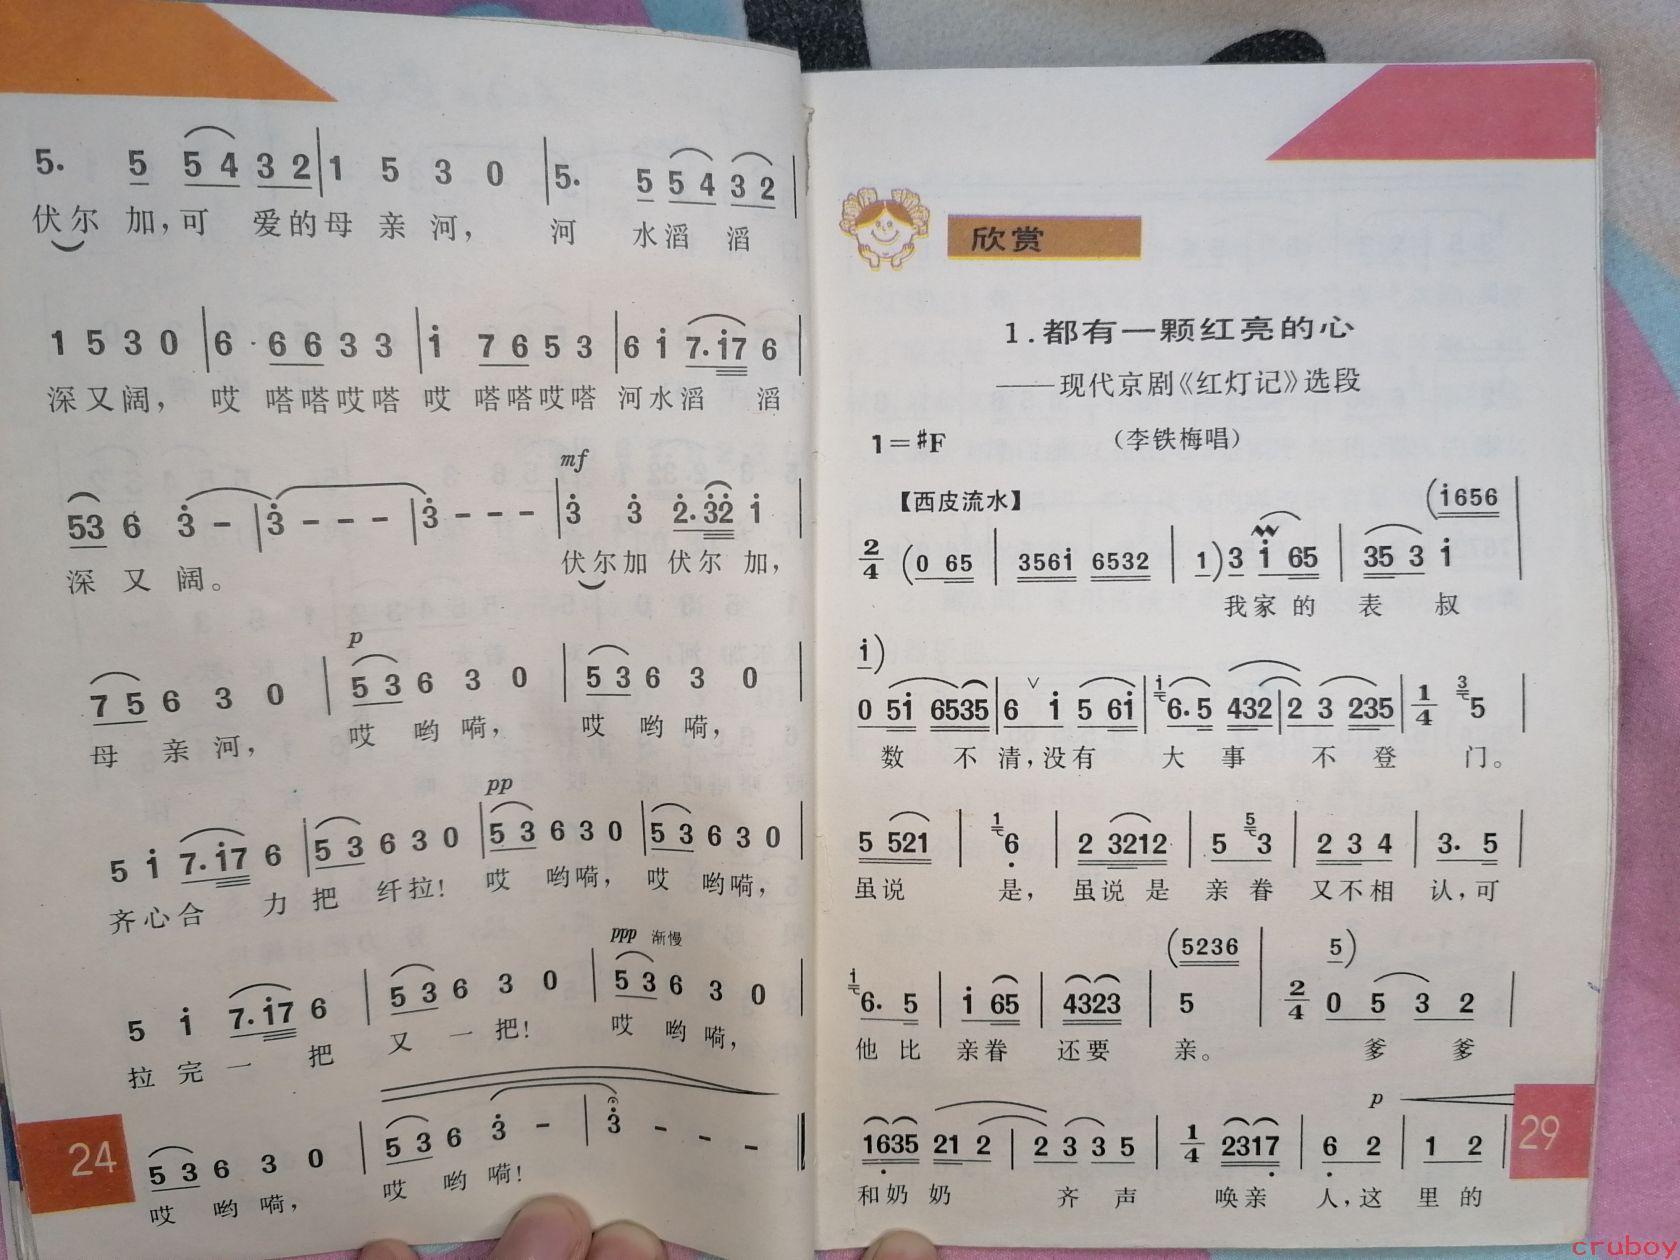 5. 5 5 4 3 2 | 1 5 3 0 | 5. 5 5 4 3 2 |
伏尔 加,可 爱的母 亲 河, 河 水滔 滔
1 5 3 0 | 6 · 6 6 3 3 | i 7 6 5 3 | 6 i 7. i7 6 |
深又阔, 哎 嗒嗒哎嗒 哎 嗒嗒哎嗒 河水滔 滔
mf
53 6 3 - | 3 - - - | 3 - - - | 3 3 2. 32 i |
深 又 阔。 伏尔加 伏尔 加,
p
7 5 6 3 0 | 5 3 6 3 0 | 5 3 6 3 0 |
母 亲 河, 哎 哟 嗬, 哎 哟 嗬,
pp
5 i 7. i7 6 | 5 3 6 3 0 | 5 3 6 3 0 | 5 3 6 3 0 |
齐心合 力 把 纤拉! 哎 哟嗬, 哎 哟嗬,
ppp 渐慢
5 i 7. i7 6 | 5 3 6 3 0 | 5 3 6 3 0 |
拉 完 一 把 又 一 把! 哎 哟 嗬,
5 3 6 3 0 | 5 3 6 3 - | 3 - - - ‖
哎 哟 嗬, 哎 哟 嗬!
24
欣赏
1.都有一颗红亮的心
——现代京剧《红灯记》选段
1=#F (李铁梅唱)
【西皮流水】
(i656
2/4 (0 65 | 356i 6532 | 1) 3 i 65 | 35 3 i |
我家 的 表 叔
i)
0 5i 6535 | 6 ∨ i 5 6i | i 6. 5 432 | 2 3 235 | 1/4 3 5 |
数 不 清,没有 大 事 不 登 门。
5 521 | 1 6 | 2 3212 | 5 5 3 | 2 3 4 | 3. 5 |
虽说 是, 虽说 是 亲 眷 又不相 认,可
(5236 5)
i 6. 5 | i 65 | 4323 | 5 | 2/4 0 5 3 2 |
他 比 亲眷 还要 亲。 爹 爹
p
1635 21 2 | 2 3 3 5 | 1/4 2317 | 6 2 | 1 2 |
和奶 奶 齐 声 唤亲 人,这 里 的
29
cruboy